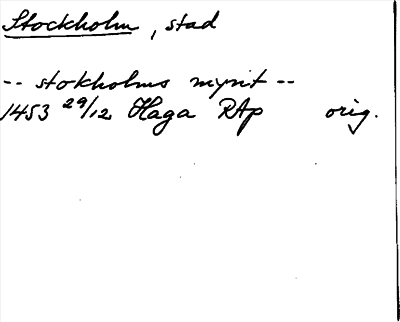 Stockholm, stad
-- stokholms mynt --
1453 29/12 Haga RAp orig.